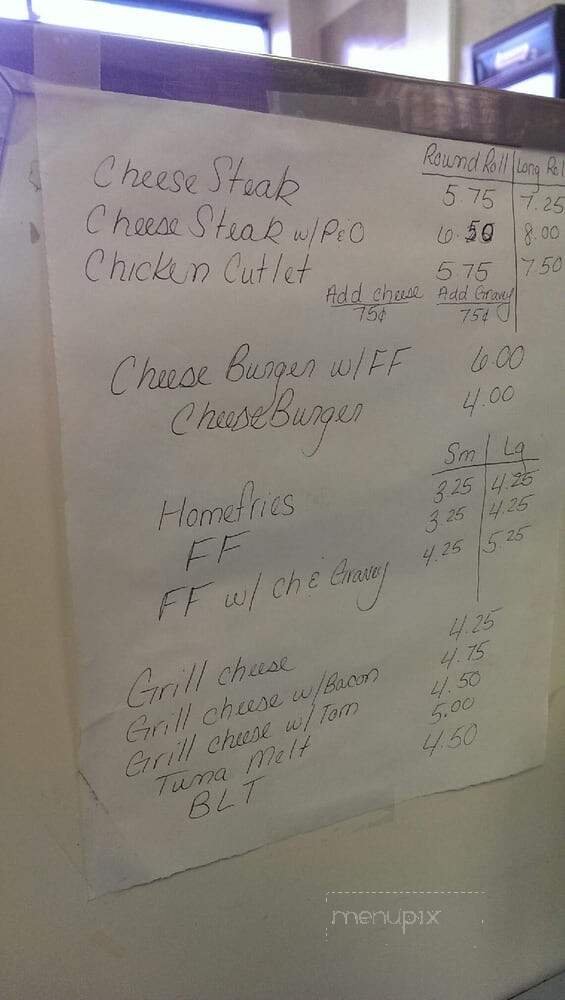 Round Roll Long Rol
Cheese Steak 5.75 7.25
Cheese Steak w/P&O 6.50 8.00
Chicken Cutlet 5.75 7.50
Add cheese Add Gravy
75¢ 75¢
Cheese Burger w/FF 6.00
Cheese Burger 4.00
Sm Lg
Homefries 3.25 4.25
FF 3.25 4.25
FF w/ ch & Gravy 4.25 5.25
Grill cheese 4.25
Grill cheese w/Bacon 4.75
Grill cheese w/Tom 4.50
Tuna Melt 5.00
BLT 4.50
menupix